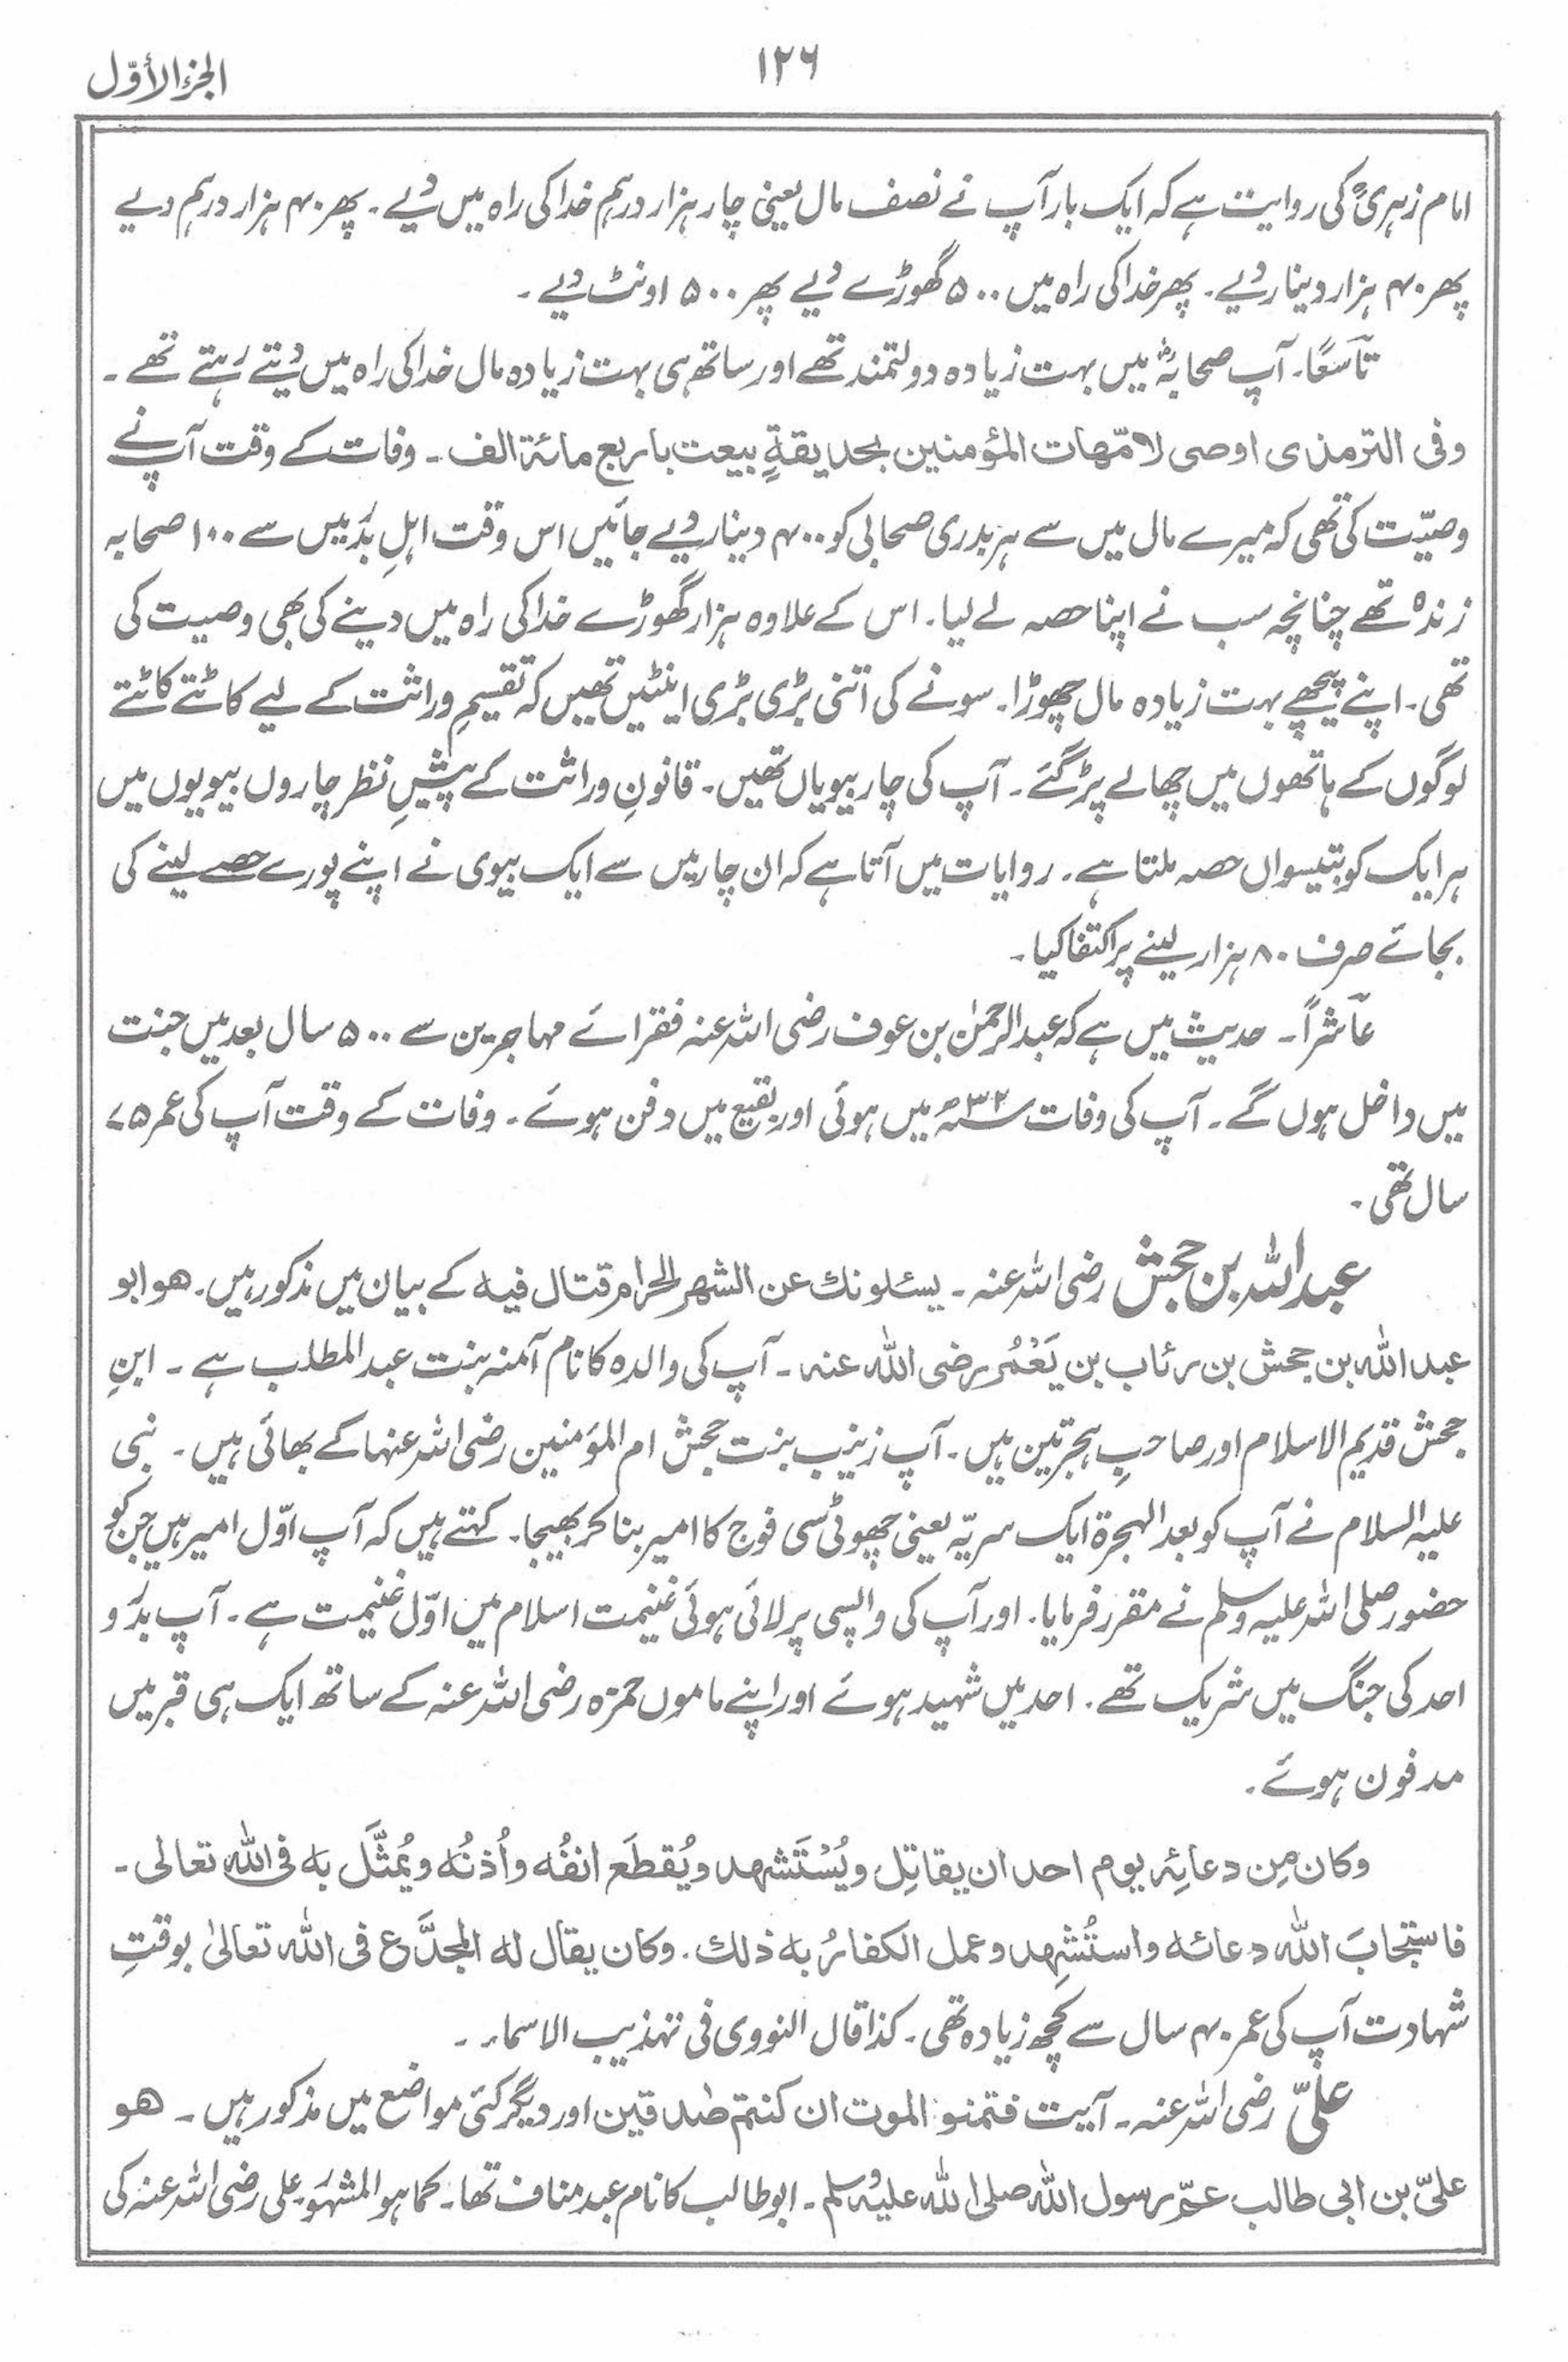 الجزء الأوّل
۱۲۶
امام زہریؒ کی روایت ہے کہ ایک بار آپ نے نصف مال یعنی چار ہزار درہم خدا کی راہ میں دیے۔ پھر ۴۰ ہزار درہم دیے
پھر ۴۰ ہزار دینار دیے۔ پھر خدا کی راہ میں ۵۰۰ گھوڑے دیے پھر ۵۰۰ اونٹ دیے۔
تاسعًا۔ آپ صحابہؓ میں بہت زیادہ دولتمند تھے اور ساتھ ہی بہت زیادہ مال خدا کی راہ میں دیتے رہتے تھے۔
وفی الترمذی اوصی لامّھات المؤمنین بحدیقةٍ بیعت باربع مائة الف۔ وفات کے وقت آپ نے
وصیّت کی تھی کہ میرے مال میں سے ہر بدری صحابی کو ۴۰۰ دینار دیے جائیں اس وقت اہلِ بدر میں سے ۱۰۰ صحابہ
زندہ تھے چنانچہ سب نے اپنا حصہ لے لیا۔ اس کے علاوہ ہزار گھوڑے خدا کی راہ میں دینے کی بھی وصیت کی
تھی۔ اپنے پیچھے بہت زیادہ مال چھوڑا۔ سونے کی اتنی بڑی بڑی اینٹیں تھیں کہ تقسیمِ وراثت کے لیے کاٹتے کاٹتے
لوگوں کے ہاتھوں میں چھالے پڑ گئے۔ آپ کی چار بیویاں تھیں۔ قانونِ وراثت کے پیشِ نظر چاروں بیویوں میں
ہر ایک کو بتیسواں حصہ ملتا ہے۔ روایات میں آتا ہے کہ ان چار میں سے ایک بیوی نے اپنے پورے حصے لینے کی
بجائے صرف ۸۰ ہزار لینے پر اکتفا کیا۔
عاشراً۔ حدیث میں ہے کہ عبدالرحمٰن بن عوف رضی اللہ عنہ فقرائے مہاجرین سے ۵۰۰ سال بعد میں جنت
میں داخل ہوں گے۔ آپ کی وفات ۳۲ھ میں ہوئی اور بقیع میں دفن ہوئے۔ وفات کے وقت آپ کی عمر ۷۵
سال تھی۔
عبداللہ بن جحش رضی اللہ عنہ۔ یسئلونك عن الشھر الحرام قتال فیه کے بیان میں مذکور ہیں۔ ھو ابو
عبد اللہ بن جحش بن رئاب بن یَعْمُر رضی اللہ عنہ۔ آپ کی والدہ کا نام آمنہ بنت عبدالمطلب ہے۔ ابنِ
جحش قدیم الاسلام اور صاحبِ ہجرتین ہیں۔ آپ زینب بنت جحش ام المؤمنین رضی اللہ عنہا کے بھائی ہیں۔ نبی
علیہ السلام نے آپ کو بعد الہجرۃ ایک سریّہ یعنی چھوٹی سی فوج کا امیر بنا کر بھیجا۔ کہتے ہیں کہ آپ اوّل امیر ہیں جن کو
حضور صلی اللہ علیہ وسلم نے مقرر فرمایا۔ اور آپ کی واپسی پر لائی ہوئی غنیمت اسلام میں اوّل غنیمت ہے۔ آپ بدر و
احد کی جنگ میں شریک تھے۔ احد میں شہید ہوئے اور اپنے ماموں حمزہ رضی اللہ عنہ کے ساتھ ایک ہی قبر میں
مدفون ہوئے۔
وکان مِن دعائِہ یوم احد ان یقاتِل ویُسْتَشهد ویُقطَع انفُه واُذنُه ویُمثَّل به فی اللہ تعالی۔
فاستجابَ اللہ دعائه واستُشهِد وعمل الکفارُ به ذلك۔ وکان یقال له المجدَّع فی اللہ تعالیٰ بوقتِ
شہادت آپ کی عمر ۴۰ سال سے کچھ زیادہ تھی۔ کذا قال النووی فی تہذیب الاسماء۔
علیّ رضی اللہ عنہ۔ آیت فتمنوا الموت ان کنتم صٰدقین اور دیگر کئی مواضع میں مذکور ہیں۔ ھو
علیّ بن ابی طالب عمّ رسول اللہ صلی اللہ علیہ وسلم۔ ابوطالب کا نام عبد مناف تھا۔ کما ہو المشہور۔ علی رضی اللہ عنہ کی